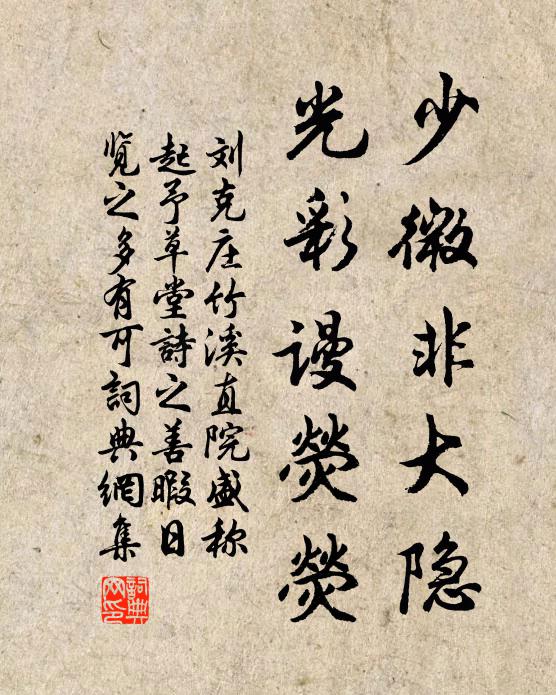 少微非大隐
光彩谩熒熒
刘克庄竹溪直院盛称
起予草堂詩之善暇日
览之多有可詞典網集
詞典
网印